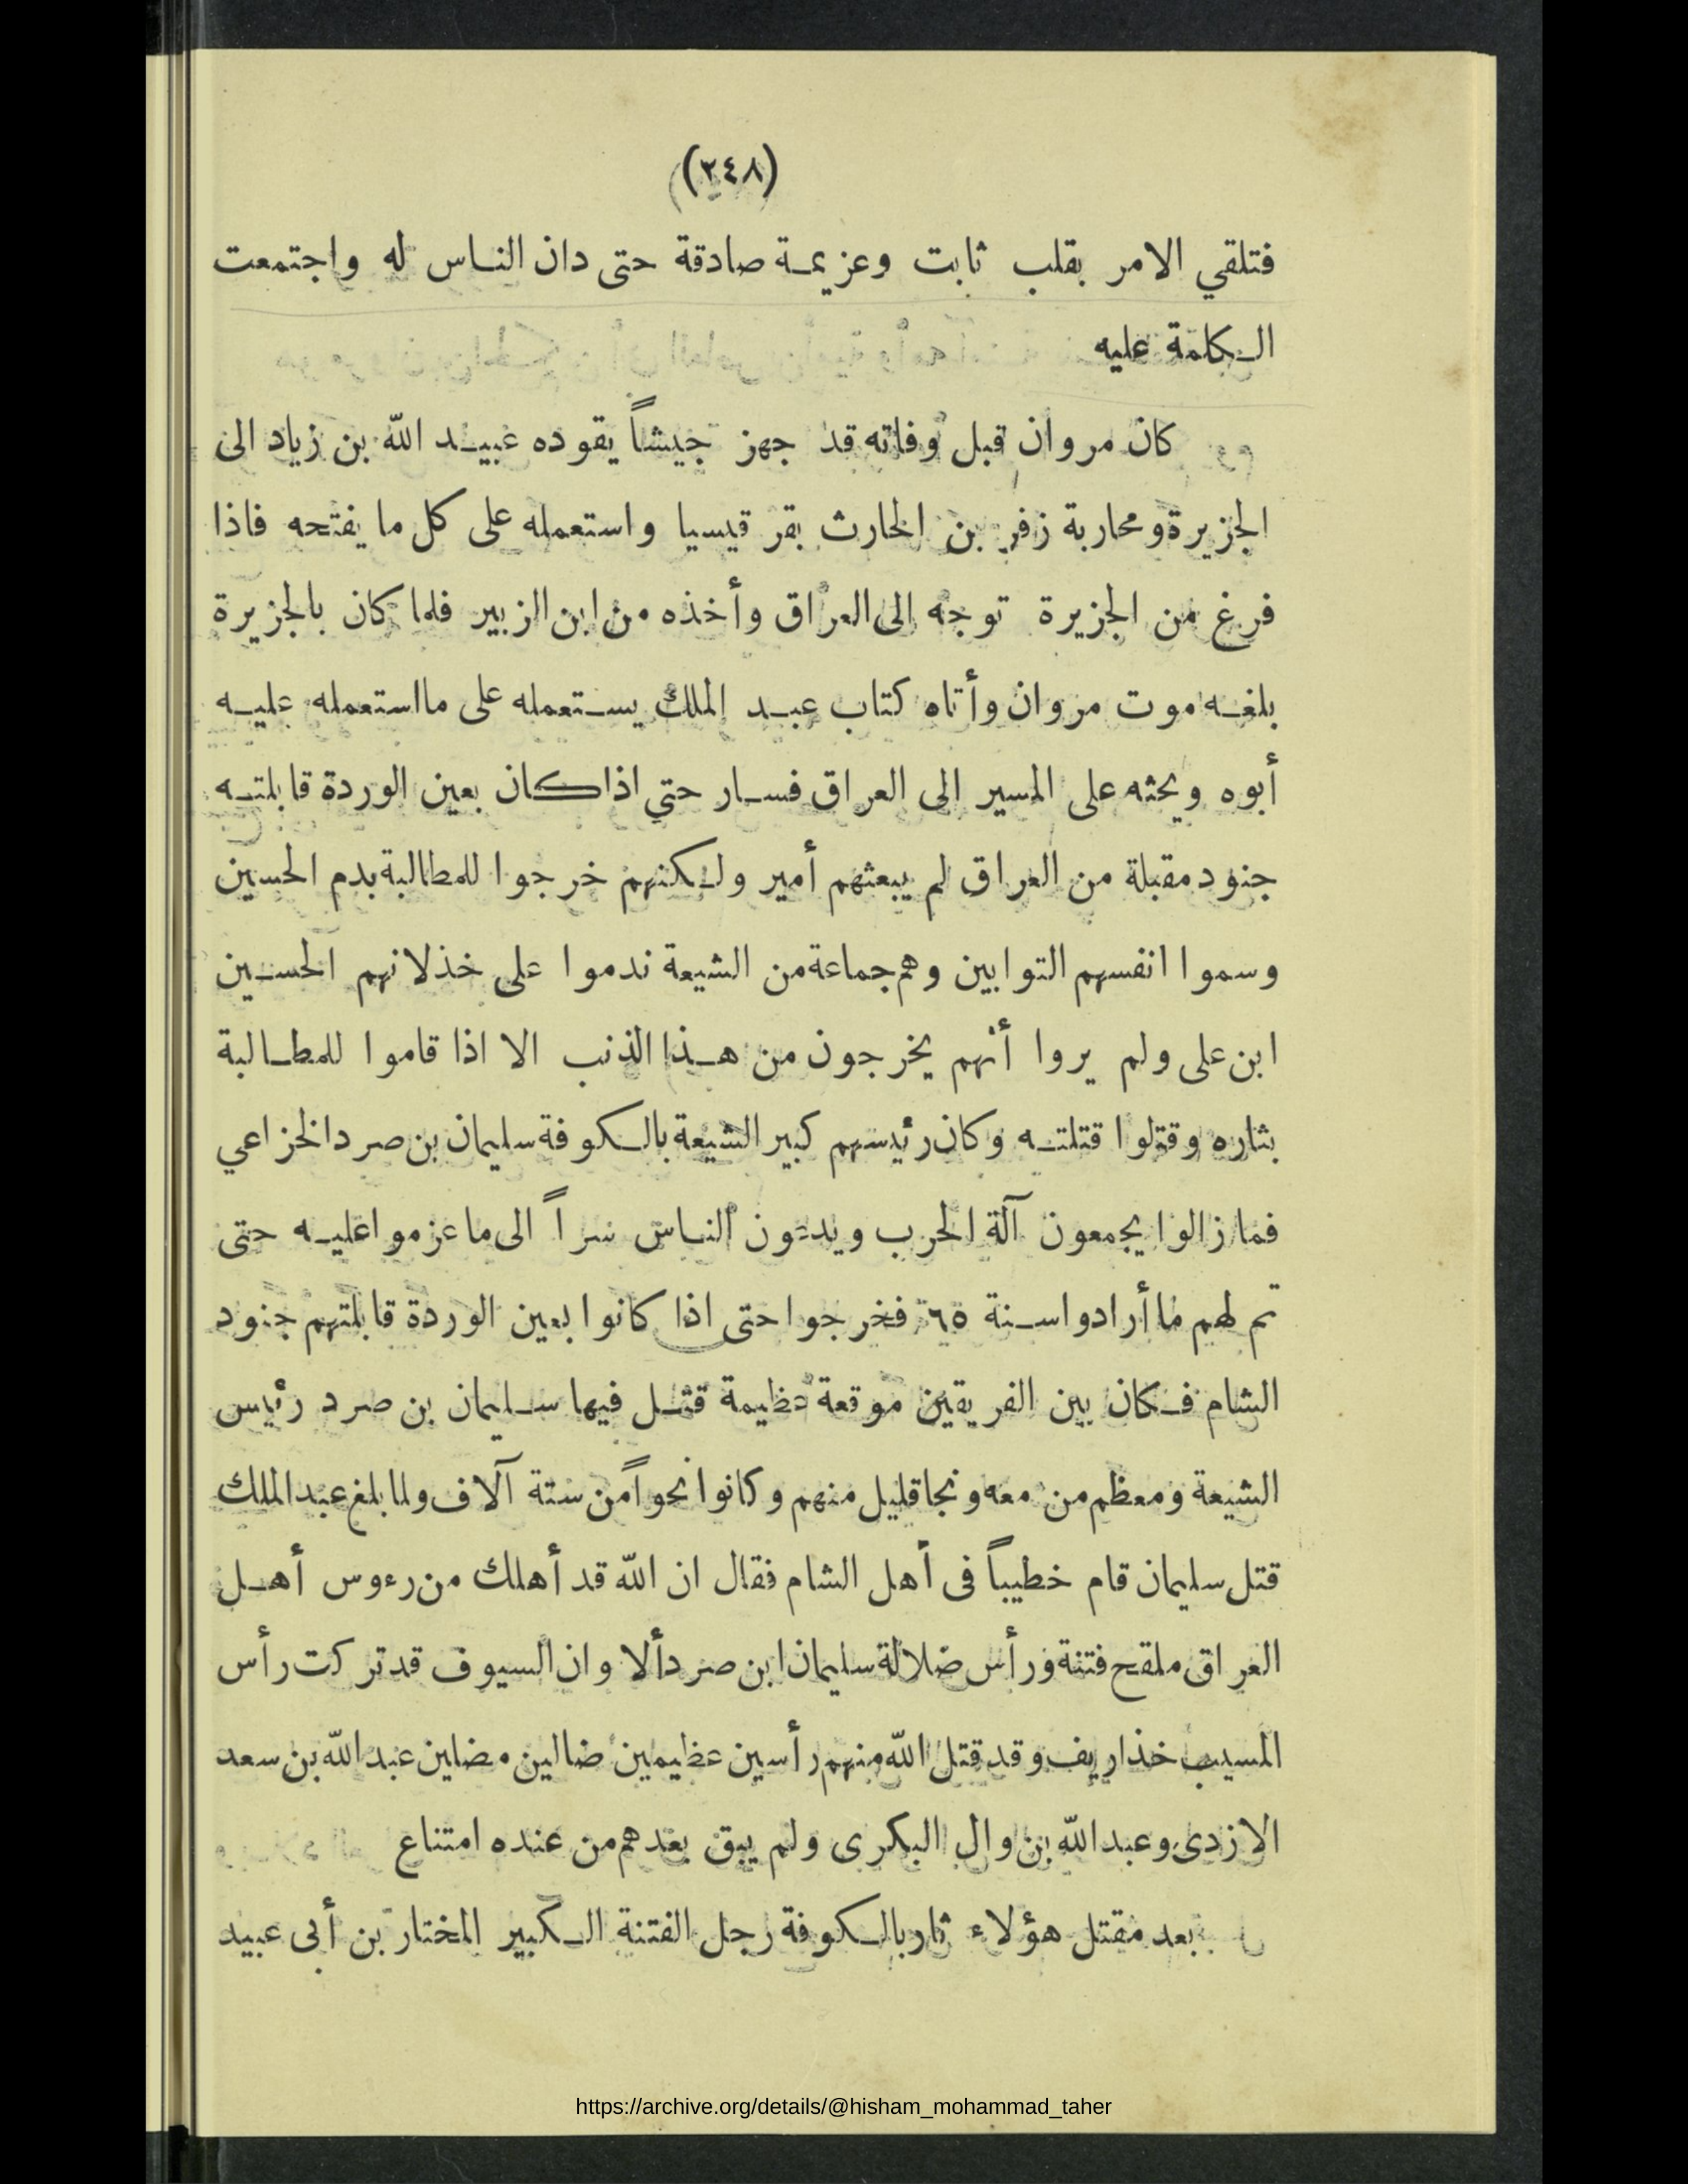 (٢٤٨)
فتلقي الامر بقلب ثابت وعزيمة صادقة حتى دان الناس له واجتمعت
الكلمة عليه
كان مروان قبل وفاته قد جهز جيشاً يقوده عبيد الله بن زياد الى
الجزيرة ومحاربة زفر بن الحارث بقرقيسيا واستعمله على كل ما يفتحه فاذا
فرغ من الجزيرة توجه الى العراق وأخذه من ابن الزبير فلما كان بالجزيرة
بلغه موت مروان وأتاه كتاب عبد الملك يستعمله على ما استعمله عليه
أبوه ويحثه على المسير الى العراق فسار حتي اذا كان بعين الوردة قابلته
جنود مقبلة من العراق لم يبعثهم أمير ولكنهم خرجوا للمطالبة بدم الحسين
وسموا انفسهم التوابين وهم جماعة من الشيعة ندموا على خذلانهم الحسين
ابن على ولم يروا أنهم يخرجون من هذا الذنب الا اذا قاموا للمطالبة
بثاره وقتلوا قتلته وكان رئيسهم كبير الشيعة بالكوفة سليمان بن صرد الخزاعي
فما زالوا يجمعون آلة الحرب ويدعون الناس سراً الى ما عزموا عليه حتى
تم لهم ما أرادوا سنة ٦٥ فخرجوا حتى اذا كانوا بعين الوردة قابلتهم جنود
الشام فكان بين الفريقين موقعة عظيمة قتل فيها سليمان بن صرد رئيس
الشيعة ومعظم من معه ونجا قليل منهم وكانوا نحواً من ستة آلاف ولما بلغ عبد الملك
قتل سليمان قام خطيباً فى أهل الشام فقال ان الله قد أهلك من رءوس أهل
العراق ملقح فتنة ورأس ضلالة سليمان ابن صرد ألا وان السيوف قد تركت رأس
المسيب خذاريف وقد قتل الله منهم رأسين عظيمين ضالين مضلين عبد الله بن سعد
الازدى وعبد الله بن وال البكرى ولم يبق بعدهم من عنده امتناع
بعد مقتل هؤلاء ثار بالكوفة رجل الفتنة الكبير المختار بن أبى عبيد
https://archive.org/details/@hisham_mohammad_taher